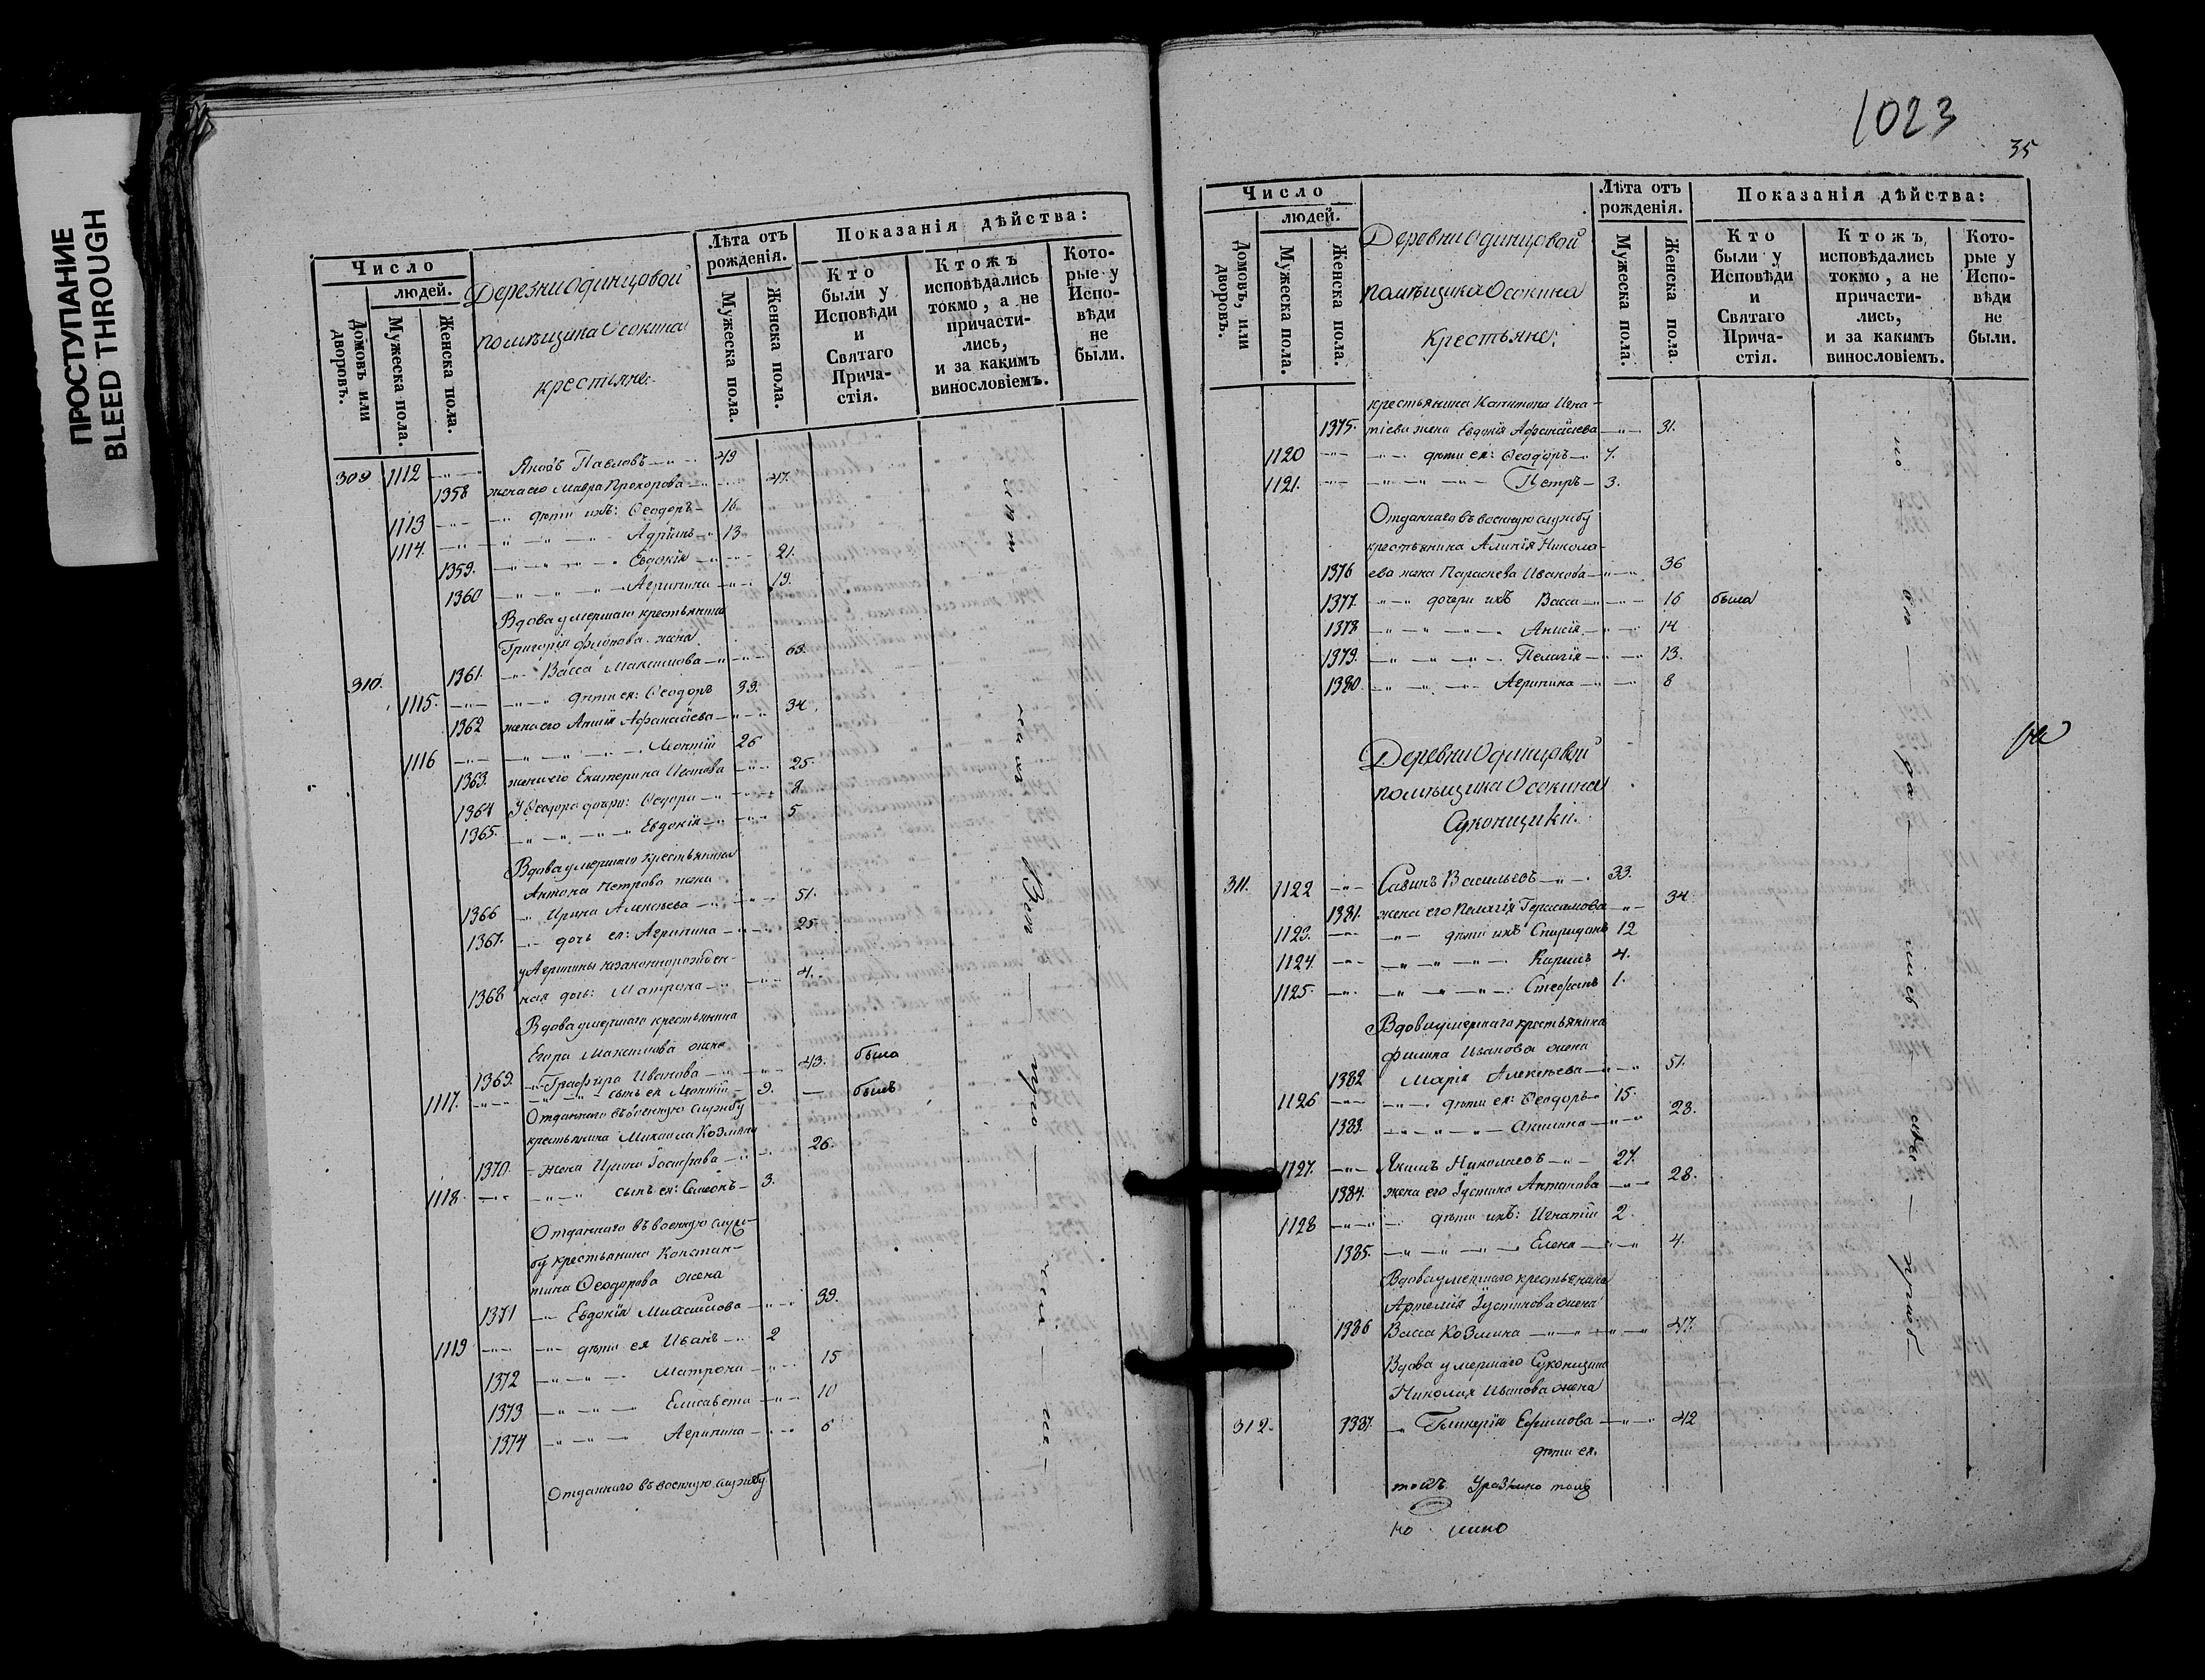 ПРОСТУПАНИЕ
BLEED THROUGH
Число
людей.
Домовъ или дворовъ.
Мужеска пола.
Женска пола.
Деревни Одинцовой
помѣщика Осокина
крестьяне:
Лѣта отъ рожденія.
Мужеска пола.
Женска пола.
Показанія дѣйства:
Кто были у Исповѣди и Святаго Причастія.
Ктожъ исповѣдались токмо, а не причастились, и за какимъ винословіемъ.
Которые у Исповѣди не были.
309 1112 Яковъ Павловъ 49
1358 жена его Мавра Прохорова 47.
1113 дѣти ихъ: Ѳеодоръ 16
1114. Адріанъ 13
1359. Евдокія 21.
1360 Агрипина 19.
Вдова умершаго крестьянина
Григорія жена
310. 1361. Васса Максимова 63.
1115. дѣти ея: Ѳеодоръ 33.
1362 жена его Анисія Афанасіева 34.
1116 Леонтій 26
1363. жена его Екатерина 25.
1364 У Ѳеодора дочери: Ѳедора 8
1365. Евдокія 5
Вдова умершаго крестьянина
Антона Петрова жена
1366 Ирина Алексѣева 51.
1367. дочь ея: Агрипина 25
у Агрипины незаконнорожден-
1368 ная дочь: Матрона 4.
Вдова умершаго крестьянина
Егора Максимова жена
1369. Глафира Иванова 43. была
1117. сынъ ея Леонтій 9. былъ
Отданнаго въ военную службу
крестьянина Михаила Козмина
1370. жена Ирина Іосифова 26.
1118. сынъ ея: Симеонъ 3.
Отданнаго въ военную служ-
бу крестьянина Констан-
тина Ѳеодорова жена
1371 Евдокія Михайлова 39.
1119 дѣти ея Иванъ 2
1372 Матрона 15
1373 Елисавета 10
1374 Агрипина 6
Отданнаго въ военную службу
1023
35
Число
людей.
Домовъ, или дворовъ.
Мужеска пола.
Женска пола.
Деревни Одинцовой
помѣщика Осокина
крестьяне:
Лѣта отъ рожденія.
Мужеска пола.
Женска пола.
Показанія дѣйства:
Кто были у Исповѣди и Святаго Причастія.
Ктожъ исповѣдались токмо, а не причастились, и за какимъ винословіемъ.
Которые у Исповѣди не были.
крестьянина Капитона Игна-
1375. тіева жена Евдокія Афанасіева 31.
1120 дѣти ея: Ѳеодоръ 7.
1121. Петръ 3.
Отданнаго въ военную службу
крестьянина Алипія Никола-
1376 ева жена Параскева Иванова 36
1377. дочери ихъ Васса 16 была
1378 Анисія 14
1379. Пелагія 13.
1380 Агрипина 8
Деревни Одинцовой
помѣщика Осокина
Суконщики.
311. 1122 Савинъ Васильевъ 33.
1381. жена его Пелагія Герасимова 34
1123. дѣти ихъ Спиридонъ 12
1124. Карпъ 4.
1125. Стефанъ 1.
Вдова умершаго крестьянина
Филипа Иванова жена
1382 Марія Алексѣева 51.
1126 дѣти ея: Ѳеодоръ 15.
1383. 23.
1127. Якимъ Николаевъ 27.
1384. жена его Іустина Антонова 28.
1128 дѣти ихъ: Игнатій 2.
1385. Елена 4.
Вдова умершаго крестьянина
Артемія Іустинова жена
1386 Васса Козмина 47.
Вдова умершаго Суконщика
Николая Иванова жена
312. 1387. Гликерія Ефимова 42
дѣти ея.